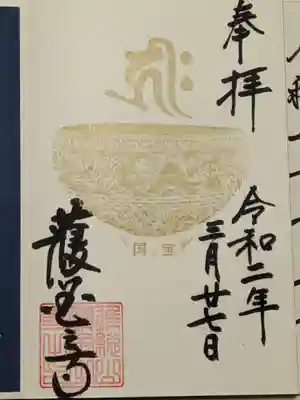 奉拝
令和二年
三月廿七日
国宝
護国之寺